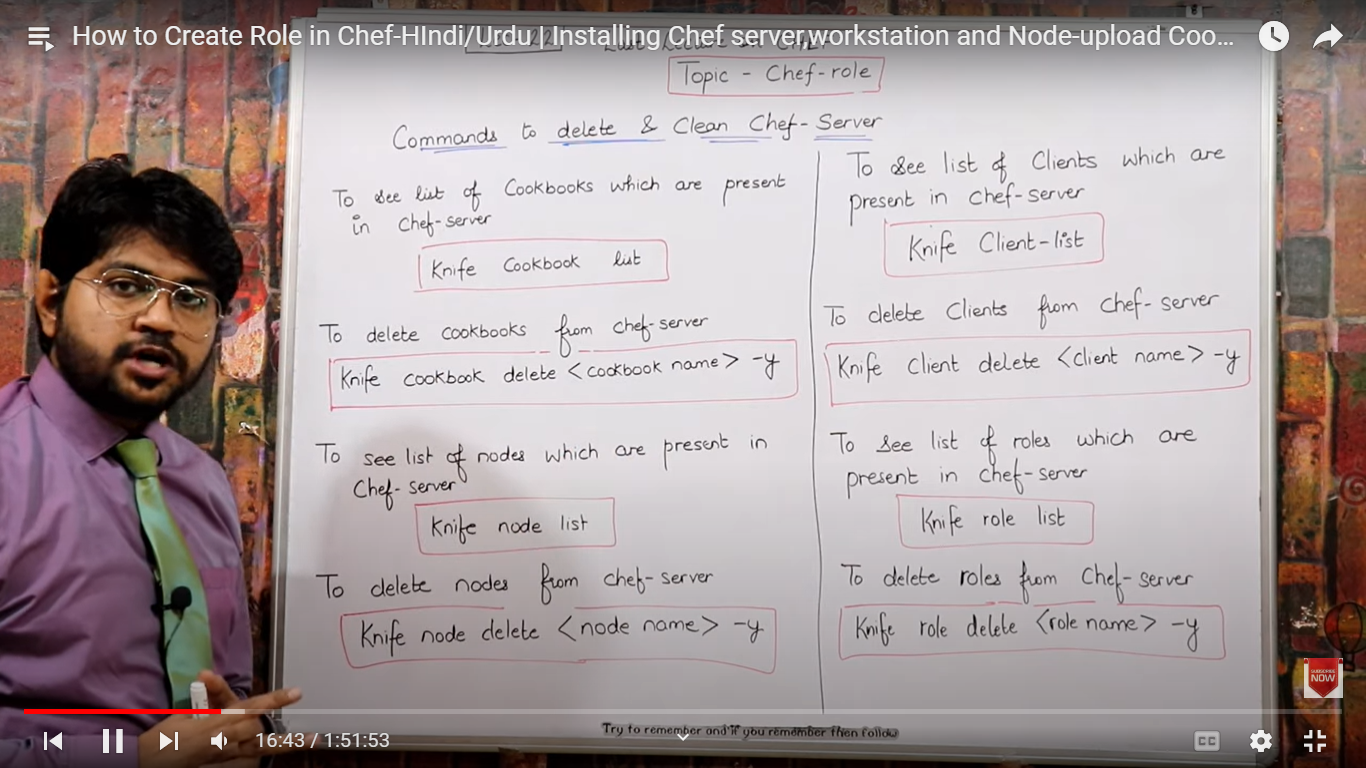 How to Create Role in Chef-HIndi/Urdu | Installing Chef server,workstation and Node-upload Coo...
Topic - Chef-role
Commands to delete & Clean Chef-Server
To see list of Cookbooks which are present
in Chef-server
Knife Cookbook list
To delete cookbooks from chef-server
Knife cookbook delete <cookbook name> -y
To see list of nodes which are present in
Chef-server
Knife node list
To delete nodes from chef-server
Knife node delete <node name> -y
To see list of Clients which are
present in chef-server
Knife Client-list
To delete Clients from chef-server
Knife Client delete <client name> -y
To see list of roles which are
present in chef-server
Knife role list
To delete roles from Chef-server
Knife role delete <role name> -y
SUBSCRIBE
NOW
Try to remember and if you remember then follow
16:43 / 1:51:53
CC